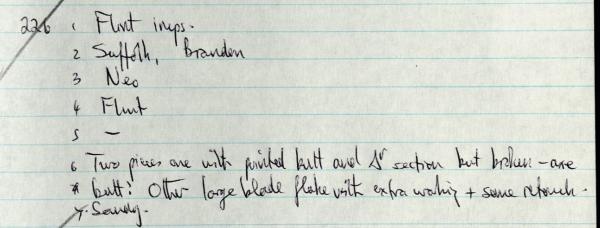 226 1 Flint imps.
2 Suffolk, Brandon
3 Neo
4 Flint
5 —
6 Two pieces one with pointed butt and Δr section but broken – axe
* butt? Other large blade flake with extra working + some retouch.
7.